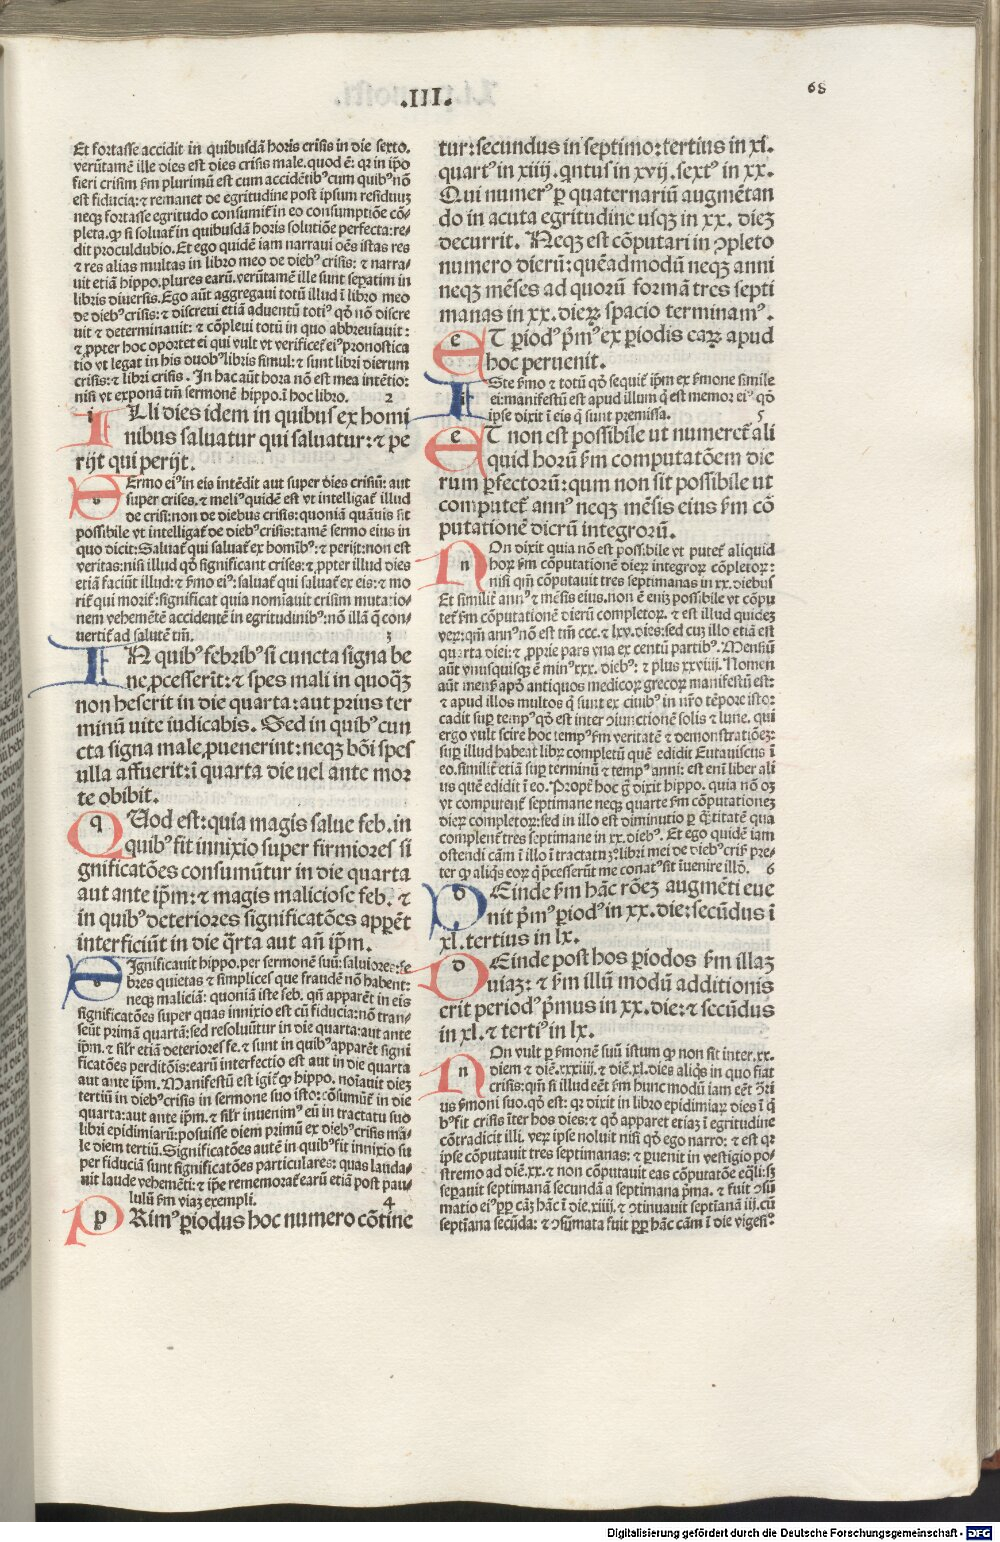 .III.
68
Et fortasse accidit in quibusdã horis crisis in die sexto.
verũtamẽ ille dies est dies crisis male. quod ẽ: qꝛ in ip̃o
fieri crisim ẜm plurimũ est cum accidẽtibꝰ cum quibꝰ nõ
est fiducia: ⁊ remanet de egritudine post ipsum residuuꝫ
neqꝫ fortasse egritudo consumit̃ in eo consumptiõe cõ-
pleta. ꝙ si soluat̃ in quibusdã horis solutiõe perfecta: re-
dit proculdubio. Et ego quidẽ iam narraui oẽs istas res
⁊ res alias multas in libro meo de diebꝰ crisis: ⁊ narra-
uit etiã hippo. plures earũ. verũtamẽ ille sunt sep̱atim in
libris diuersis. Ego aũt aggregaui totũ illud ĩ libro meo
de diebꝰ crisis: ⁊ discreui etiã aduentũ totiꝰ qḋ nõ discre
uit ⁊ determinauit: ⁊ cõpleui totũ in quo abbreuiauit:
⁊ ꝓpter hoc oportet ei qui vult vt verificet eiꝰ pronostica
tio vt legat in his duobꝰ libris simul: ⁊ sunt libri dierum
crisis: ⁊ libri crisis. In hac aũt hora nõ est mea intẽtio:
nisi vt exponã tm̃ sermonẽ hippo. ĩ hoc libro. 2
i Lli dies idem in quibus ex homi
nibus saluatur qui saluatur: ⁊ pe
rijt qui perijt.
s Ermo eiꝰ in eis intẽdit aut super dies crisiũ: aut
super crises. ⁊ meliꝰ quidẽ est vt intelligat̃ illud
de crisi: non de diebus crisis: quoniã quãuis sit
possibile vt intelligat̃ de diebꝰ crisis: tamẽ sermo eius in
quo dicit: Saluat̃ qui saluat̃ ex homĩbꝰ: ⁊ perijt: non est
veritas: nisi illud qḋ significant crises: ⁊ ꝓpter illud dies
etiã faciũt illud: ⁊ ẜmo eiꝰ: saluat̃ qui saluat̃ ex eis: ⁊ mo
rit̃ qui morit̃: significat quia nomĩauit crisim mutatio-
nem vehemẽtẽ accidentẽ in egritudinibꝰ: nõ illã q̃ con-
uertit̃ ad salutẽ tm̃. 3
I N quibꝰ febribꝰ si cuncta signa be
ne ꝓcesserint: ⁊ spes mali in quoqꝫ
non heserit in die quarta: aut prius ter
minũ uite iudicabis. Sed in quibꝰ cun
cta signa male ꝓuenerint: neqꝫ bõi spes
ulla affuerit: ĩ quarta die uel ante mor
te obibit.
q Uod est: quia magis salue feb. in
quibꝰ fit innixio super firmiores si
gnificatões consumũtur in die quarta
aut ante ip̃m: ⁊ magis maliciose feb. ⁊
in quibꝰ deteriores significatões apparẽt
interficiũt in die q̃rta aut añ ip̃m.
s Ignificauit hippo. per sermonẽ suũ: saluiores: fe
bres quietas ⁊ simplices que fraudẽ nõ habent:
neqꝫ maliciã: quoniã iste feb. qñ apparẽt in eis
significatões super quas innixio est cũ fiducia: nõ tran-
seũt primã quartã: sed resoluũtur in die quarta: aut ante
ip̃m. ⁊ sil̃r etiã deteriores fe. ⁊ sunt in quibꝰ apparẽt signi
ficatões perditõis: earũ interfectio est aut in die quarta
aut ante ip̃m. Manifestũ est igit̃ ꝙ hippo. noĩauit dieꝫ
tertiũ in diebꝰ crisis in sermone suo isto: cõsumũt̃ in die
quarta: aut ante ip̃m. ⁊ sil̃r inuenimꝰ eũ in tractatu suo
libri epidimiarũ: posuisse diem primũ ex diebꝰ crisis ma-
le diem tertiũ. Significatões autẽ in quibꝰ fit innixio su
per fiduciã sunt significatões particulares: quas lauda-
uit laude vehemẽti: ⁊ ip̃e rememorat̃ earũ etiã post pau-
lulũ ẜm viaꝫ exempli. 4
p Rimꝰ p̱iodus hoc numero cõtine
tur: secundus in septimo: tertius in xi.
quartꝰ in xiiii. q̃ntus in xvij. sextꝰ in xx.
Qui numerꝰ p̱ quaternariũ augmẽtan
do in acuta egritudine usqꝫ in xx. dieꝫ
decurrit. Neqꝫ est cõputari in ꝯpleto
numero dierũ: quẽadmodũ neqꝫ anni
neqꝫ mẽses ad quorũ formã tres septi
manas in xx. dieꝝ spacio terminamꝰ.
e T p̱iodꝰ p̃mꝰ ex p̱iodis eaꝝ apud
hoc peruenit.
I Ste ẜmo ⁊ totũ qḋ sequit̃ ip̃m ex ẜmone simile
ei: manifestũ est apud illum q̃ est memor eiꝰ qḋ
ipse dixit ĩ eis q̃ sunt premissa. 5
e T non est possibile ut numeret̃ ali
quid horũ ẜm computatõem die
rum ꝑfectorũ: qum non sit possibile ut
computet̃ annꝰ neqꝫ mẽsis eius ẜm cõ
putationẽ dierũ integrorũ.
n On dixit quia nõ est possibile vt putet̃ aliquid
hoꝝ ẜm cõputationẽ dieꝝ integroꝝ cõpletoꝝ:
nisi qm̃ cõputauit tres septimanas in xx. diebus
Et similit̃ annꝰ ⁊ mẽsis eius. non ẽ eniꝫ possibile vt cõpu
tet̃ ẜm cõputationẽ dierũ completoꝝ. ⁊ est illud quideꝫ
veꝝ: qm̃ annꝰ nõ est tm̃ ccc. ⁊ lxv. dies: sed cuꝫ illo etiã est
quarta diei: ⁊ ꝓprie pars vna ex centũ partibꝰ. Mensiũ
aũt vnusquisqꝫ ẽ minꝰ xxx. diebꝰ: ⁊ plus xxviiij. Nomen
aũt mensꝭ apḋ antiquos medicoꝝ grecoꝝ manifestũ est:
⁊ apud illos multos q̃ sunt ex ciuibꝰ in nr̃o tẽpore isto:
cadit sup̱ tempꝰ qḋ est inter ꝯiunctionẽ solis ⁊ lune. qui
ergo vult scire hoc tempꝰ ẜm veritatẽ ⁊ demonstratiõeꝫ:
sup̱ illud habeat librũ completũ quẽ edidit Eutaniscus ĩ
eo. similit̃ etiã sup̱ terminũ ⁊ tempꝰ anni: est enĩ liber ali
us quẽ edidit ĩ eo. Propt̃ hoc g̃ dixit hippo. quia nõ oꝫ
vt computent̃ septimane neqꝫ quarte ẜm cõputationeꝫ
dieꝝ completoꝝ: sed in illo est diminutio p̱ q̃titatẽ qua
complent̃ tres septimane in xx. diebꝰ. Et ego quidẽ iam
ostendi cãm ĩ illo ĩ tractatu 3ꝰ libri mei de diebꝰ crisꝭ pre-
ter ꝙ aliq̃s eoꝝ q̃ p̃cesserũt me conatꝰ sit ĩuenire illõ. 6
d Einde ẜm hãc rõeꝫ augmẽti eue
nit p̃mꝰ p̱iodꝰ in xx. die: secũdus ĩ
xl. tertius in lx.
d Einde post hos p̱iodos ẜm illaꝫ
uiaꝫ: ⁊ ẜm illũ modũ additionis
erit periodꝰ p̃mus in xx. die: ⁊ secũdus
in xl. ⁊ tertiꝰ in lx.
n On vult p̱ ẜmonẽ suũ istum ꝙ non sit inter. xx.
diem ⁊ diẽ. xxxiiij. ⁊ diẽ. xl. dies aliq̃s in quo fiat
crisis: qm̃ si illud eẽt ẜm hunc modũ iam eẽt ꝯ̃ri
us ẜmoni suo. qḋ est: qꝛ dixit in libro epidimiaꝝ dies ĩ q̃
bꝰ fit crisis ĩter hos dies: ⁊ qḋ apparet etiaꝫ ĩ egritudine
cõtradicit illi. veꝝ ipse noluit nisi qḋ ego narro: ⁊ est qꝛ
ipse cõputauit tres septimanas: ⁊ p̱uenit in vestigio po-
stremo ad diẽ. xx. ⁊ non cõputauit eas cõputatõe eq̃li: sꝫ
sep̱auit septimanã secundã a septimana p̃ma. ⁊ fuit ꝯsũ
matio eiꝰ ꝓp̱ cãꝫ hãc ĩ die. xiiii. ⁊ ꝯtinuauit septĩanã iij. cũ
septĩana secũda: ⁊ ꝯsũmata fuit ꝓp̱ hãc cãm ĩ die vigesiꝰ.
Digitalisierung gefördert durch die Deutsche Forschungsgemeinschaft - DFG